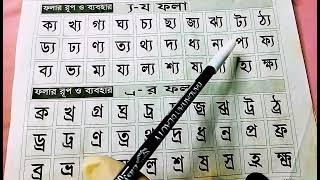 ফলার রূপ ও ব্যবহার ্য-য ফলা
ক্য খ্য গ্য ঘ্য চ্য ছ্য জ্য ঝ্য ট্য ঠ্য
ড্য ঢ্য ণ্য ত্য থ্য দ্য ধ্য ন্য প্য ফ্য
ব্য ভ্য ম্য য্য ল্য শ্য ষ্য হ্য ক্ষ্য
ফলার রূপ ও ব্যবহার ্র-র ফলা
ক্র খ্র গ্র ঘ্র চ্র ছ্র জ্র ঝ্র ট্র ঠ্র
ড্র ঢ্র ণ্র ত্র থ্র দ্র ধ্র ন্র প্র ফ্র
ব্র ভ্র শ্র ষ্র স্র হ্র ক্ষ্র